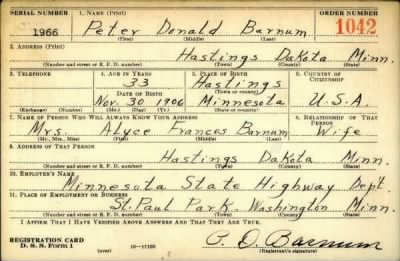 SERIAL NUMBER 1. NAME (Print) ORDER NUMBER
1966 Peter Donald Barnum 1042
(First) (Middle) (Last)
2. ADDRESS (Print)
Hastings Dakota Minn.
(Number and street or R. F. D. number) (Town) (County) (State)
3. TELEPHONE 4. AGE IN YEARS 5. PLACE OF BIRTH 6. COUNTRY OF CITIZENSHIP
33 Hastings
DATE OF BIRTH (Town or county)
Nov. 30 1906 Minnesota U.S.A.
(Exchange) (Number) (Mo.) (Day) (Yr.) (State or country)
7. NAME OF PERSON WHO WILL ALWAYS KNOW YOUR ADDRESS 8. RELATIONSHIP OF THAT PERSON
Mrs. Alyce Frances Barnum Wife
(Mr., Mrs., Miss) (First) (Middle) (Last)
9. ADDRESS OF THAT PERSON
Hastings Dakota Minn.
(Number and street or R. F. D. number) (Town) (County) (State)
10. EMPLOYER'S NAME
Minnesota State Highway Dept.
11. PLACE OF EMPLOYMENT OR BUSINESS
St. Paul Park Washington Minn.
(Number and street or R. F. D. number) (Town) (County) (State)
I AFFIRM THAT I HAVE VERIFIED ABOVE ANSWERS AND THAT THEY ARE TRUE.
REGISTRATION CARD
D. S. S. Form 1 (over) 16—17105 P. D. Barnum
(Registrant's signature)